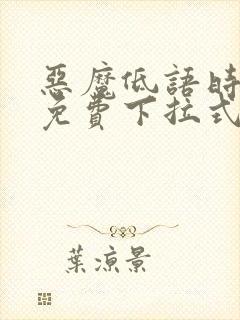 惡魔低語時
免費下拉式
葉涼景